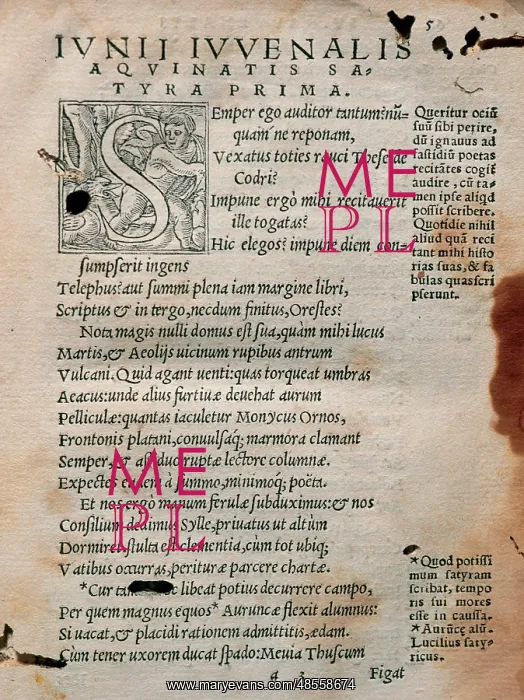 5
IVNIJ IVVENALIS
AQVINATIS SA-
TYRA PRIMA.
SEmper ego auditor tantum? nũ-
quam' ne reponam,
Vexatus toties rauci Theseide
Codri?
Impune ergò mihi recitauerit
ille togatas?
Hic elegos? impune diem con-
sumpserit ingens
Telephus? aut summi plena iam margine libri,
Scriptus & in tergo, necdum finitus, Orestes?
Nota magis nulli domus est sua, quàm mihi lucus
Martis, & Aeolijs uicinum rupibus antrum
Vulcani. Quid agant uenti: quas torqueat umbras
Aeacus: unde alius furtiuæ deuehat aurum
Pelliculæ: quantas iaculetur Monycus Ornos,
Frontonis platani, conuulsaq; marmora clamant
Semper, & assiduo ruptæ lectore columnæ.
Expectes eadem à summo, minimoq; poëta.
Et nos ergò manum ferulæ subduximus: & nos
Consilium dedimus Syllæ, priuatus ut altùm
Dormiret. stulta est clementia, cùm tot ubiq;
Vatibus occurras, perituræ parcere chartæ.
*Cur libeat potius decurrere campo,
Per quem magnus equos* Auruncæ flexit alumnus:
Si uacat, & placidi rationem admittitis, ædam.
Cùm tener uxorem ducat spado: Meuia Thuscum
Figat
Queritur ociũ
suũ sibi perire,
dũ ignauus ad
fastidiũ poetas
recitãtes cogit
audire, cũ ta-
men ipse aliqd
possit scribere.
Quotidie nihil
aliud quã reci
tant mihi histo
rias suas, & fa
bulas quas scri
pserunt.
*Quod potissi
mum satyram
scribat, tempo
ris sui mores
esse in causa.
*Aurũcæ alũ.
Lucilius saty-
ricus.
ME
PL
ME
PL
www.maryevans.com/48558674